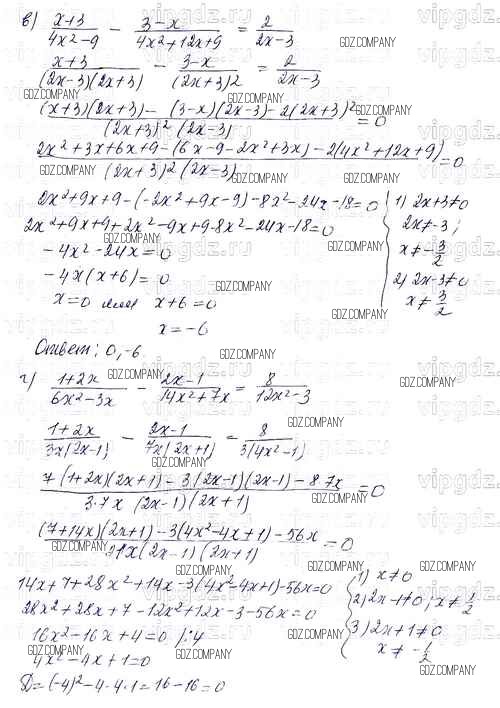 в) (x+3)/(4x²-9) - (3-x)/(4x²+12x+9) = 2/(2x-3)
(x+3)/((2x-3)(2x+3)) - (3-x)/((2x+3)²) = 2/(2x-3)
((x+3)(2x+3) - (3-x)(2x-3) - 2(2x+3)²)/((2x+3)²(2x-3)) = 0
(2x²+3x+6x+9-(6x-9-2x²+3x)-2(4x²+12x+9))/((2x+3)²(2x-3)) = 0
2x²+9x+9-(-2x²+9x-9)-8x²-24x-18=0
2x²+9x+9+2x²-9x+9-8x²-24x-18=0
-4x²-24x=0
-4x(x+6)=0
x=0 или x+6=0
x=-6
1) 2x+3≠0
2x≠-3;
x≠-3/2
2) 2x-3≠0
x≠3/2
Ответ: 0, -6
г) (1+2x)/(6x²-3x) - (2x-1)/(14x²+7x) = 8/(12x²-3)
(1+2x)/(3x(2x-1)) - (2x-1)/(7x(2x+1)) = 8/(3(4x²-1))
(7(1+2x)(2x+1) - 3(2x-1)(2x-1) - 8·7x)/(3·7x(2x-1)(2x+1)) = 0
((7+14x)(2x+1)-3(4x²-4x+1)-56x)/(21x(2x-1)(2x+1)) = 0
14x+7+28x²+14x-3(4x²-4x+1)-56x=0
28x²+28x+7-12x²+12x-3-56x=0
16x²-16x+4=0 /:4
4x²-4x+1=0
D=(-4)²-4·4·1=16-16=0
1) x≠0
2) 2x-1≠0; x≠1/2
3) 2x+1≠0
x≠-1/2
vipgdz.ru
GDZ.COMPANY